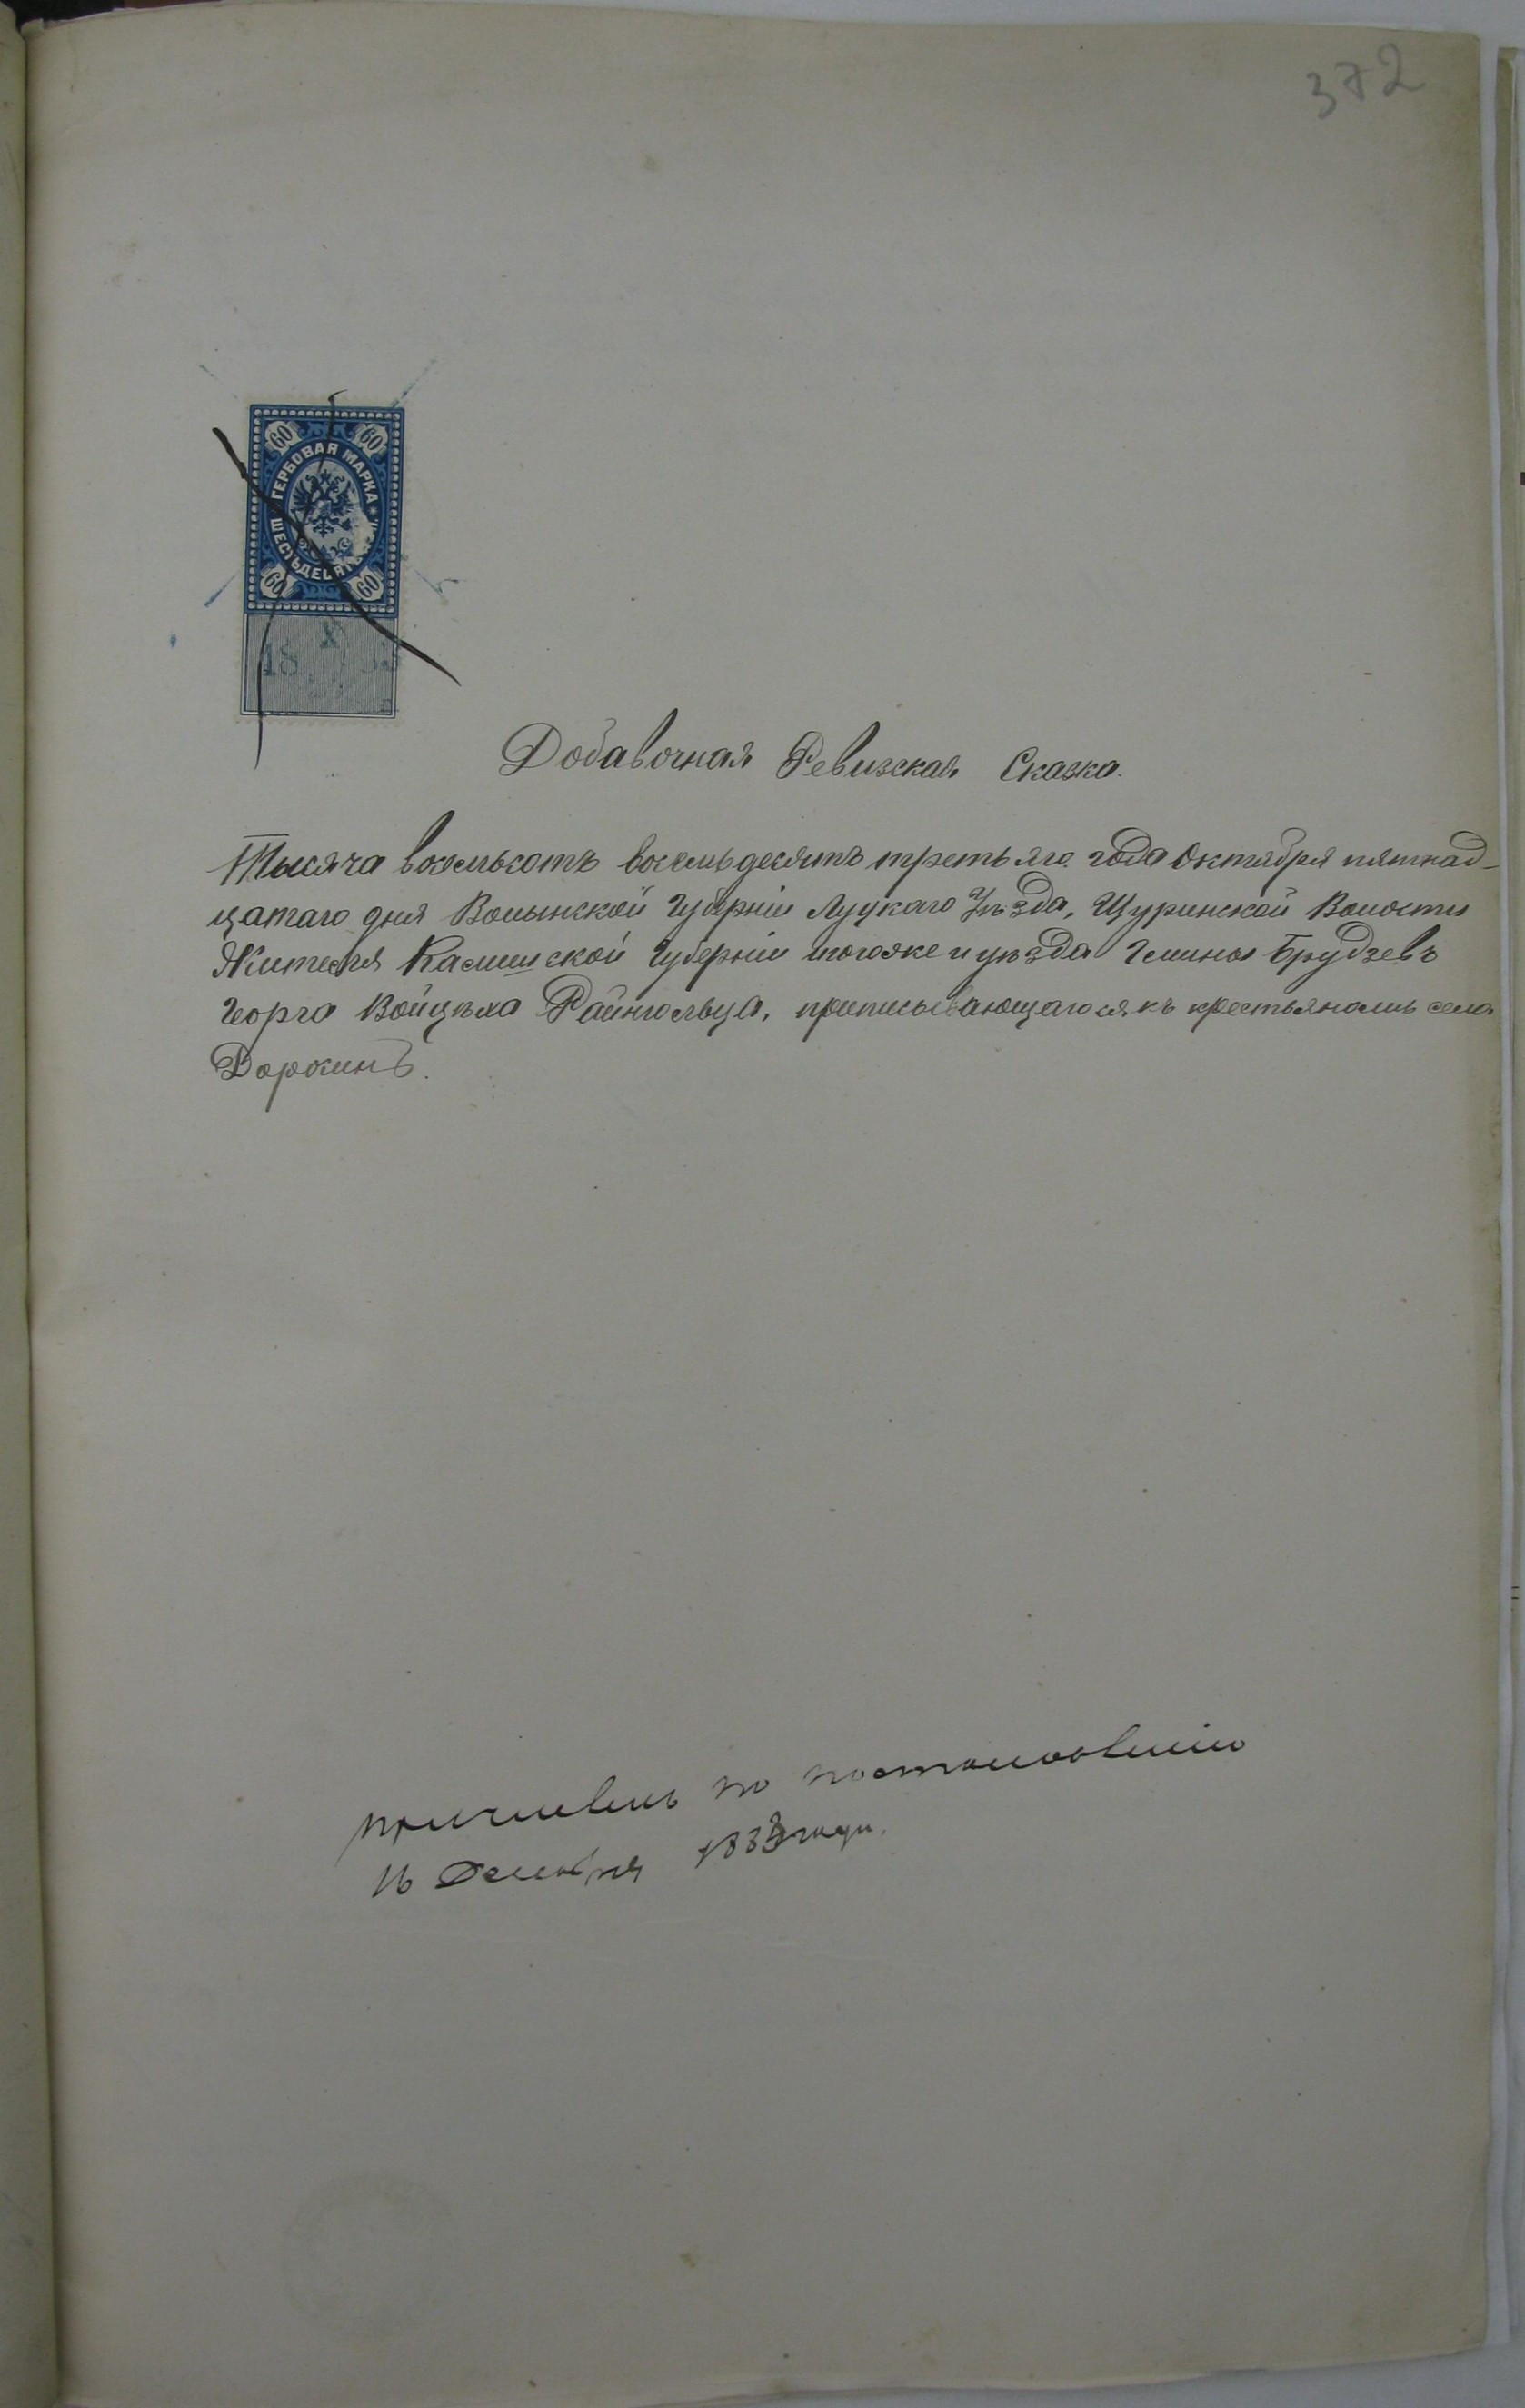 372
60 60
ГЕРБОВАЯ МАРКА
ШЕСТЬДЕСЯТЪ
60 60
18
Добавочная Ревизская Сказка.
Тысяча восемьсотъ восемьдесятъ третьяго года Октября пятнад-
цатаго дня Волынской Губерніи Луцкаго Уѣзда, Щуринской Волости
Жителя Калишской Губерніи тогоже и уѣзда Гмины Брудзевъ
Георга Войцѣха, приписывающагося къ крестьянамъ села
причисленъ по постановленію
16 Декабря 1883 года.